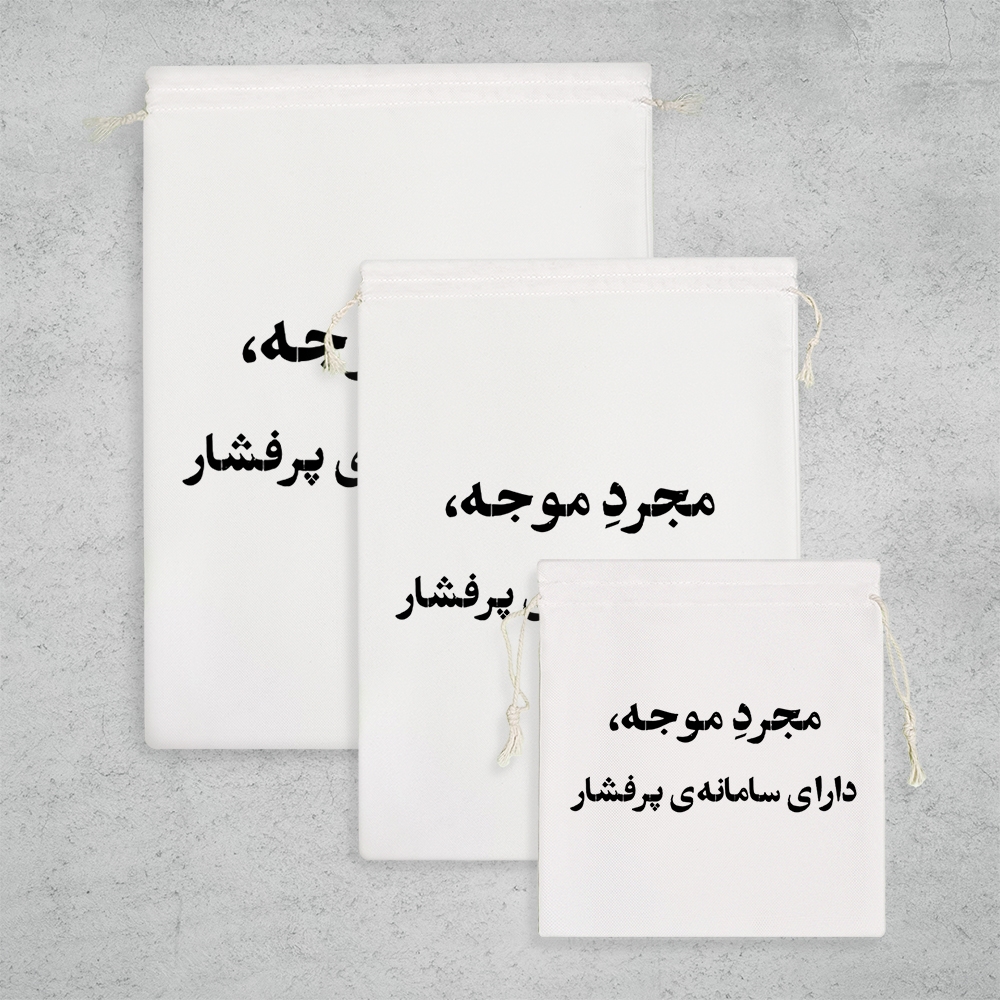 وجه،
ی پرفشار
مجردِ موجه،
پرفشار
مجردِ موجه،
دارای سامانه‌ی پرفشار